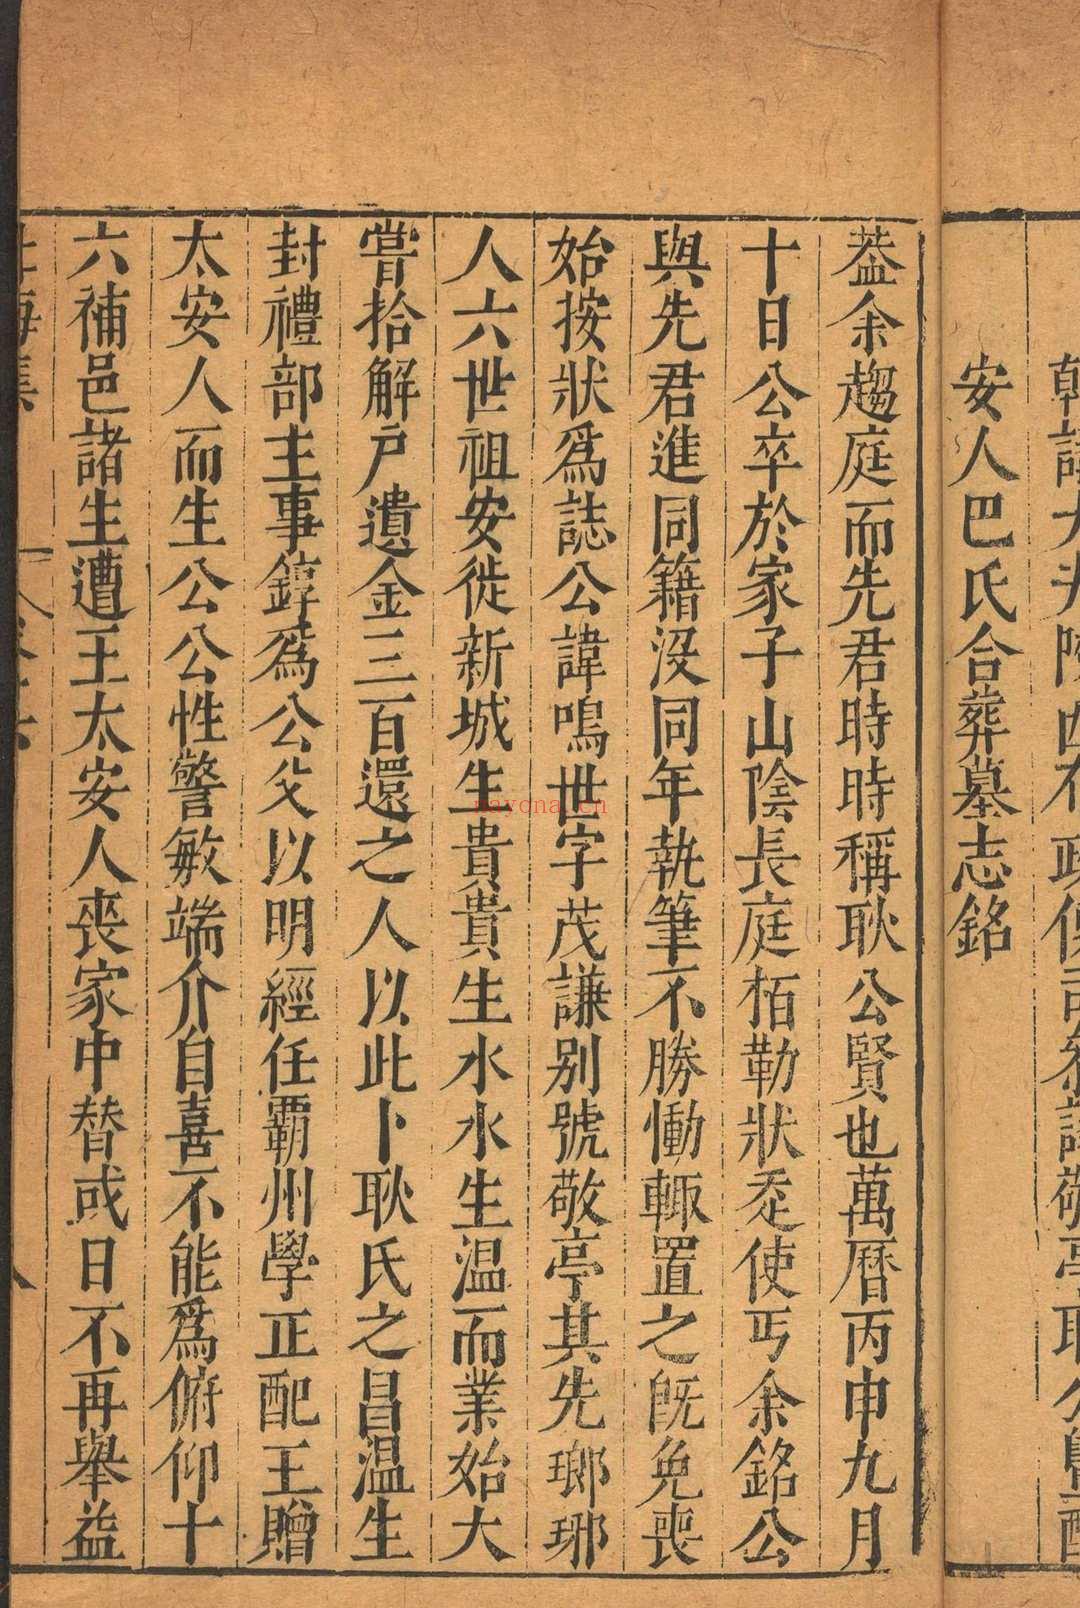 安人巴氏合葬墓志銘
葢余趨庭而先君時時稱耿公賢也萬曆丙申九月
十日公卒於家子山陰長庭栢勒狀走使丐余銘公
與先君進同籍沒同年執筆不勝慟輙置之旣免喪
始按狀爲誌公諱鳴世字茂謙别號敬亭其先瑯琊
人六世祖安徙新城生貴貴生水水生温而業始大
嘗拾解户遺金三百還之人以此卜耿氏之昌温生
封禮部主事錞爲公父以明經任霸州學正配王贈
太安人而生公公性警敏端介自喜不能爲俯仰十
六補邑諸生遭王太安人喪家中替或日不再舉益
nayona.cn